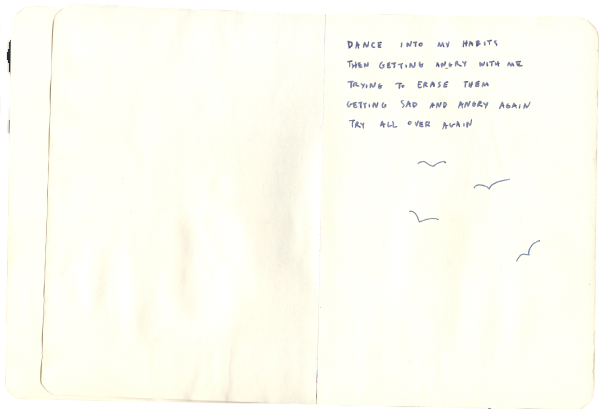 DANCE INTO MY HABITS
THEN GETTING ANGRY WITH ME
TRYING TO ERASE THEM
GETTING SAD AND ANGRY AGAIN
TRY ALL OVER AGAIN